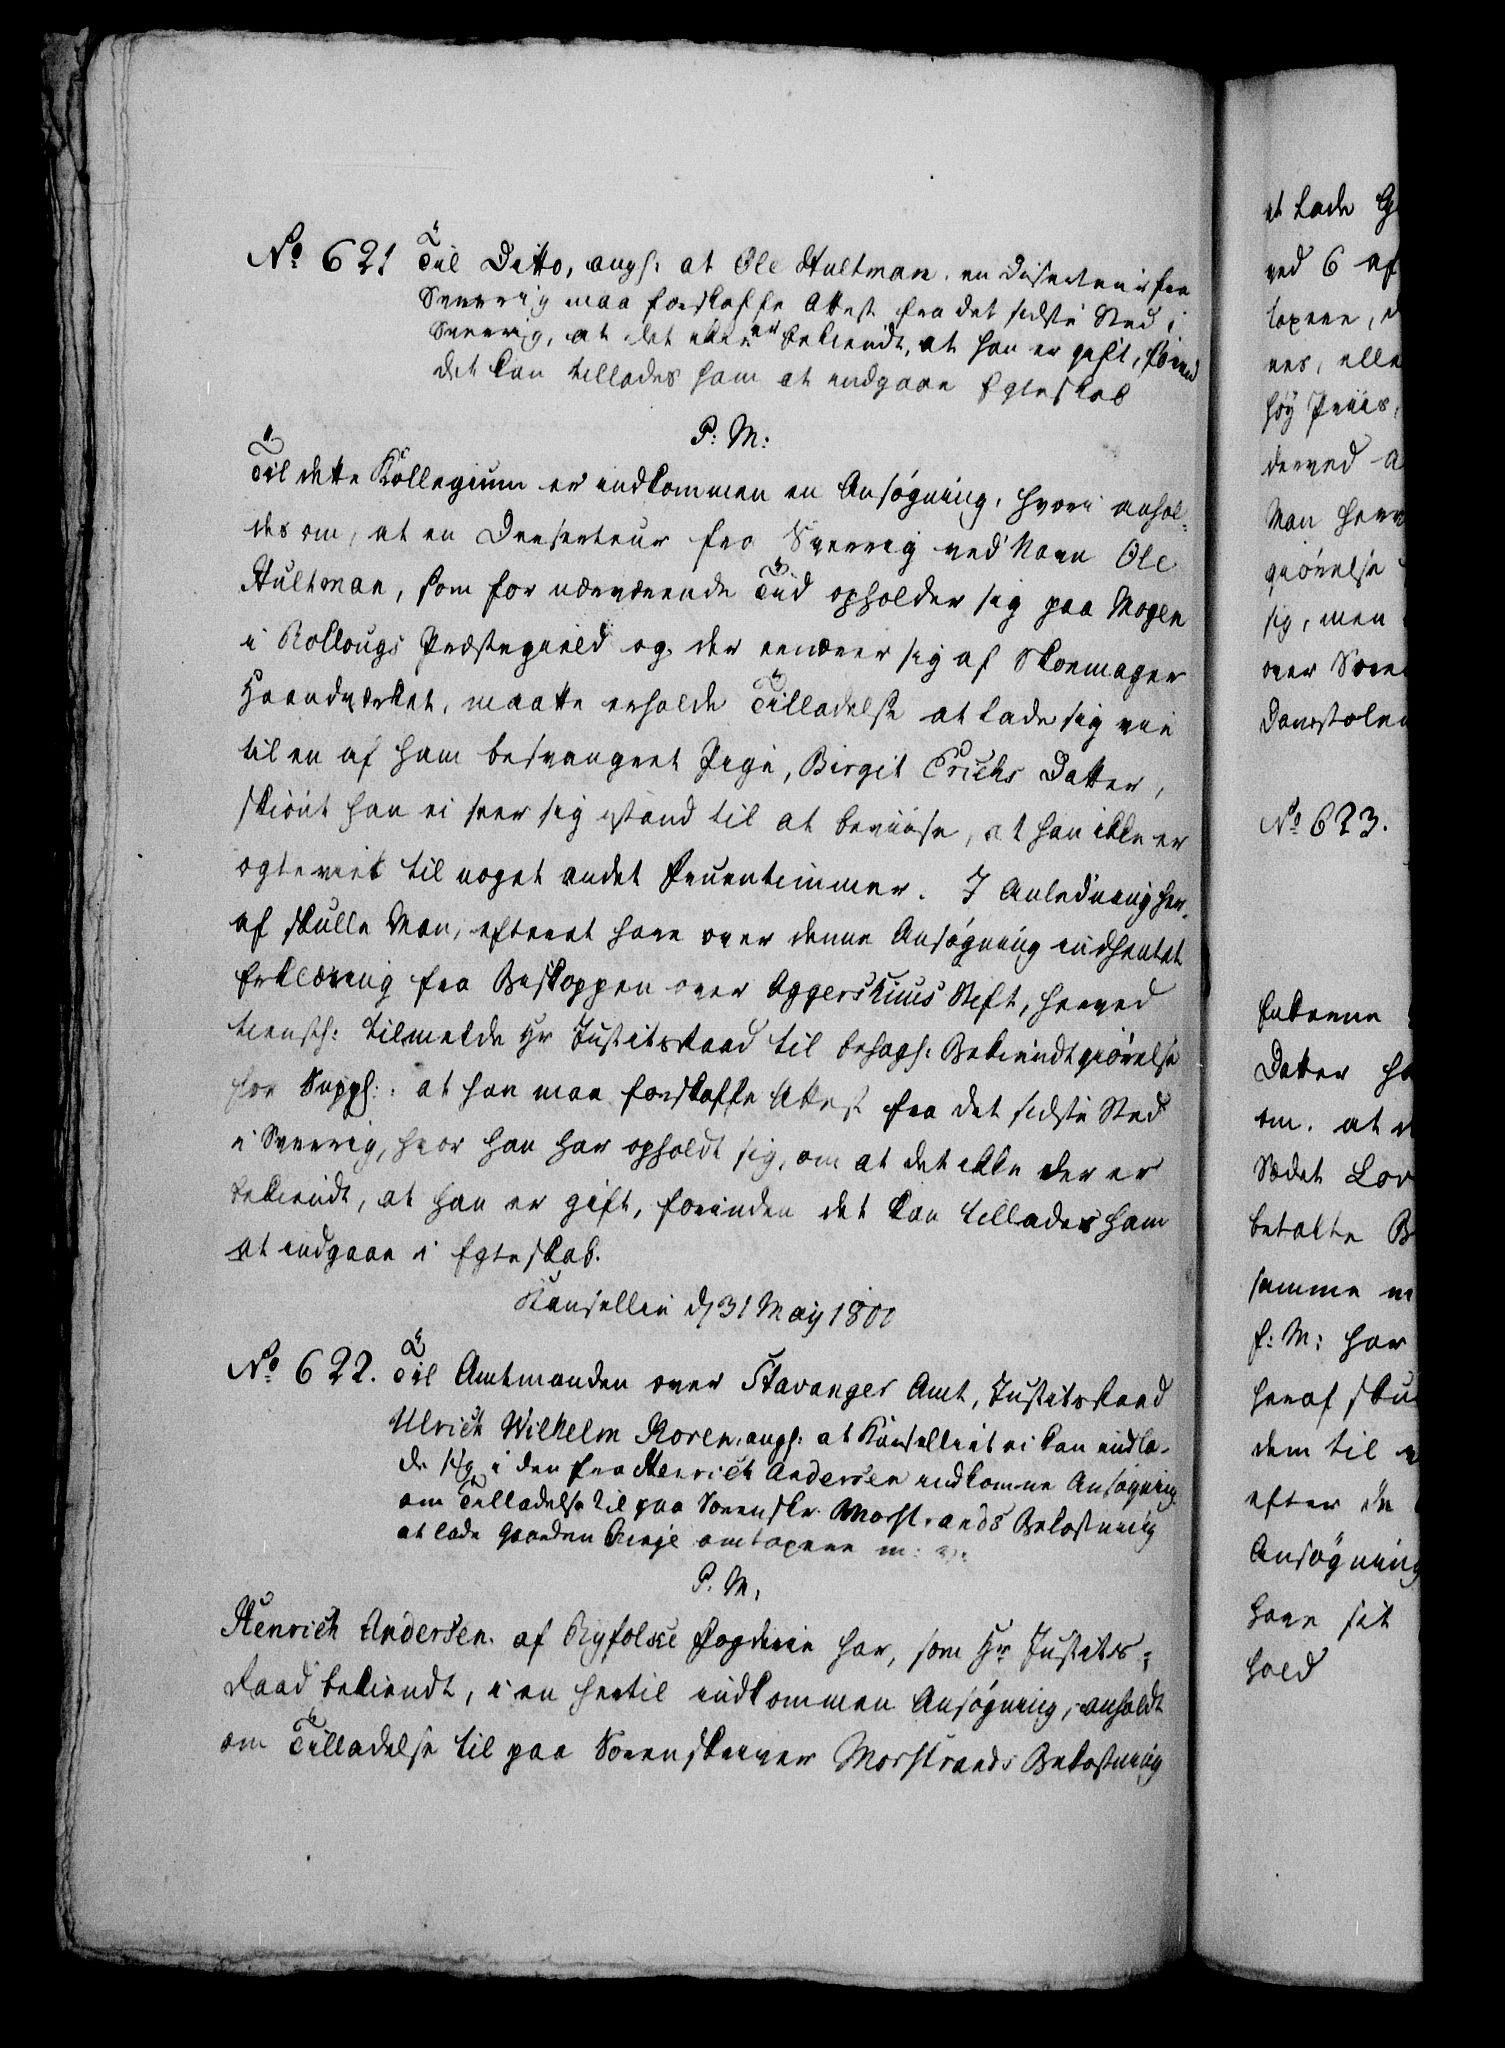 No 621 Til Ditto, angl: at Ole Hultman, en Deserteuir fra
Sverrig maa forskaffe Attest fra det sidste Sted i
Sverrig, at det ikke er bekiendt, at han er gift, förend
det kan tillades ham at indgaae Egteskab
P: M:
Til dette Kollegium er indkommen en Ansögning, hvori anhol-
des om, at en Deeserteur fra Sverrig ved Navn Ole
Hultman, som for nærværende Tiid opholder sig paa Mogen
i Rollougs Præstegield og der ernærer sig af Skoemager
Haandværket, maatte erholde Tilladelse at lade sig vie
til en af ham besvangret Pige, Birgit Erichs Datter,
skiönt han ei seer sig istand til at beviise, at han ikke er
egteviet til noget andet Fruentimmer. I Anledning her-
af skulle Man, efterat have over denne Ansögning indhentet
Erklæring fra Biskoppen over Aggershuus Stift, herved
tienstl: tilmelde Hr Justitsraad til behagl: Bekiendtgiörelse
for Suppl: at han maa forskaffe Attest fra det sidste Sted
i Sverrig, hvor han har opholdt sig, om at det ikke der er
bekiendt, at han er gift, forinden det kan tillades ham
at indgaae i Egteskab.
Kanselliet d/31 May 1800
No 622. Til Amtmanden over Stavanger Amt, Justitsraad
Ulrich Wilhelm Koren, angl: at Kanselliet ei kan indla-
de sig i den fra Henrich Andersen indkomne Ansögning
om Tilladelse til paa Sorenskr. Morstrands Bekostning
at lade Gaarden omtaxere m: v:
P. M.
Henrich Andersen af Ryfølke Fogderie har, som Hr Justits-
raad bekiendt, i en hertil indkommen Ansögning, anholdt
om Tilladelse til paa Sorenskriver Morstrands Bekostning
at lade
ved 6 af
taxere,
res, elle
höy Priis,
derved
Man herv
giörelse
sig, men
over Sore
Domstolen
No 623.
Enkerne
Datter
om, at
Sædet
betalte
samme
P: M: har
heraf sku
dem til
efter de
Ansögning
have sit
hold